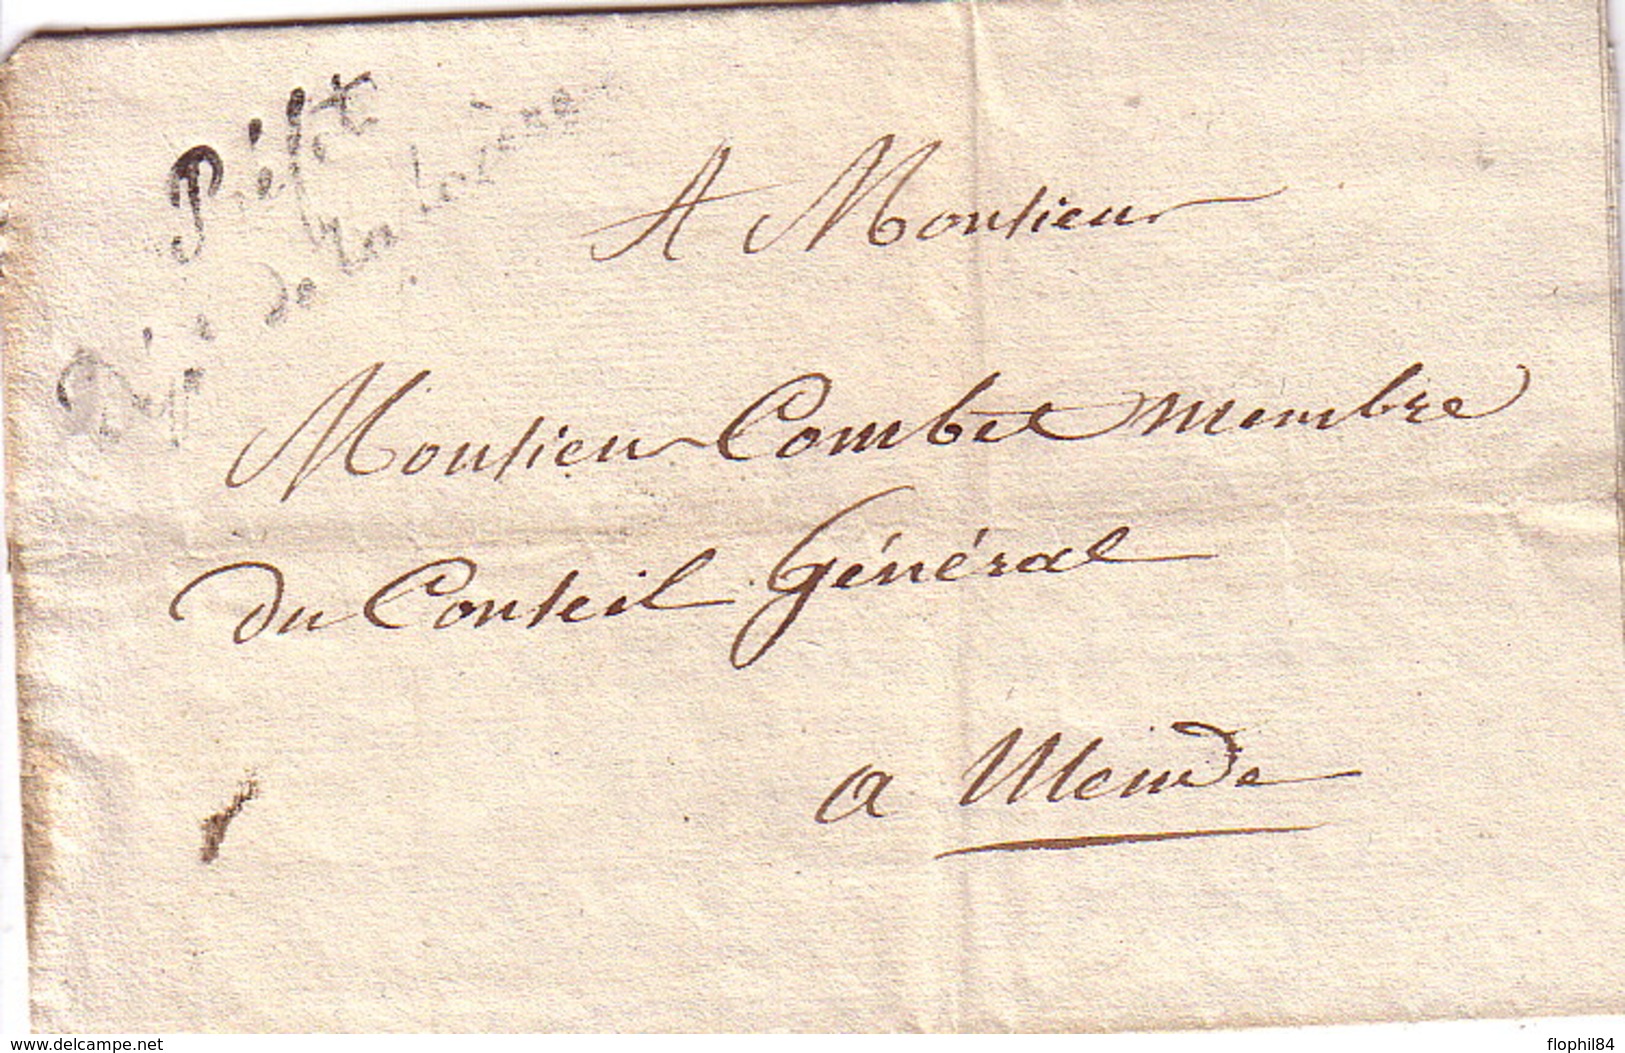 Préfet
Dép.t de la Lozère
A Monsieur
Monsieur Combet membre
du Conseil Général
a Mende
www.delcampe.net
flophil84